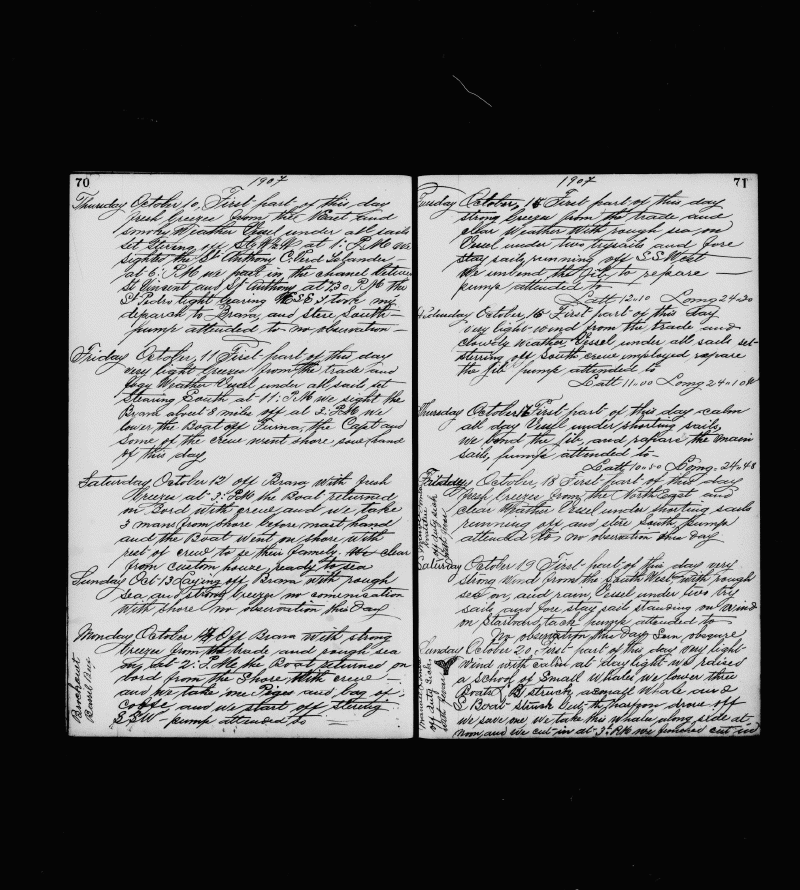 70
1907
Thursday October 10, First part of this day
fresh breeze from the West and
smoky Weather Vessel under all sails
set Stering off at 1: P.M. we
sight the St Anthony C. Verd Islander
at 6: P.M. we past in the chanel between
St Vincent and St Anthony at 7.30 P.M. the
St Peder light bearing ESE I took my
deparch to Brava, and stere South
pump attended to no observation
Friday October, 11 First part of this day
very light breeze from the trade and
fogy Weather Vessel under all sails set
Stearing South at 11: P.M. we sight the
Brava about 8 mile off at 3: P.M. we
lower the Boat off Furna, the Capt and
some of the crew went shore
of this day
Saturday October 12 off Brava with fresh
breeze at 3: P.M. the Boat returned
on Bord with crew and we take
3 mans from shore before mast hand
and the Boat went on shore with
rest of crew to se their family. clear
from custom house ready to sea
Sunday Oct 13 Laying off Brava with rough
sea and strong breeze no comunication
with shore no observation this day
Monday October 14 Off Brava with strong
breeze from the trade and rough sea
on, at 2: P.M. the Boat returned on
bord from the Shore with crew
and we take one Piges and bag of
coffe and we start off stering
SSW pump attended to
Brock out
Barril Bread
1907
71
Tuesday October, 15 First part of this day
strong breeze from the trade and
clear Weather With rough sea on
Vessel under two trysails and fore
stay sails running off S.S. West
We unbend the Jib to repare
pump attended to
Latt 12-10 Long 24-30
Wednesday October, 16 First part of this day
very light wind from the trade and
cloudy weather Vessel under all sails set
sterring off South crew imployed repare
the jib pump attended to
Latt 11-00 Long 24-10
Thursday October 17 First part of this day calm
all day Vessel under shorting sails,
we bend the jib, and repare the main
sail, pump attended to
Latt 10-50 Long. 24-48
Friday October, 18 First part of this day
fresh breeze from the North East and
clear Weather Vessel under shorting sails
running off and stere South pump
attended to no observation this day
Saturday October 19 First part of this day very
strong Wind from the South West with rough
sea on, and rain, Vessel under two try
sails and fore stay sail standing on wind
on Starbord tack pump attended to
No observation this day Sun obscure
Sunday October 20, First part of this day very light
Wind with calm at daylight we raised
a school of Small Whales we lower three
Boats, struck a small Whale and
Boat struck but the harpon drove off
we save one we take this whale along side at
noon, and we cut in at 3: P.M. we finished cut in
off duty sick
off duty sick